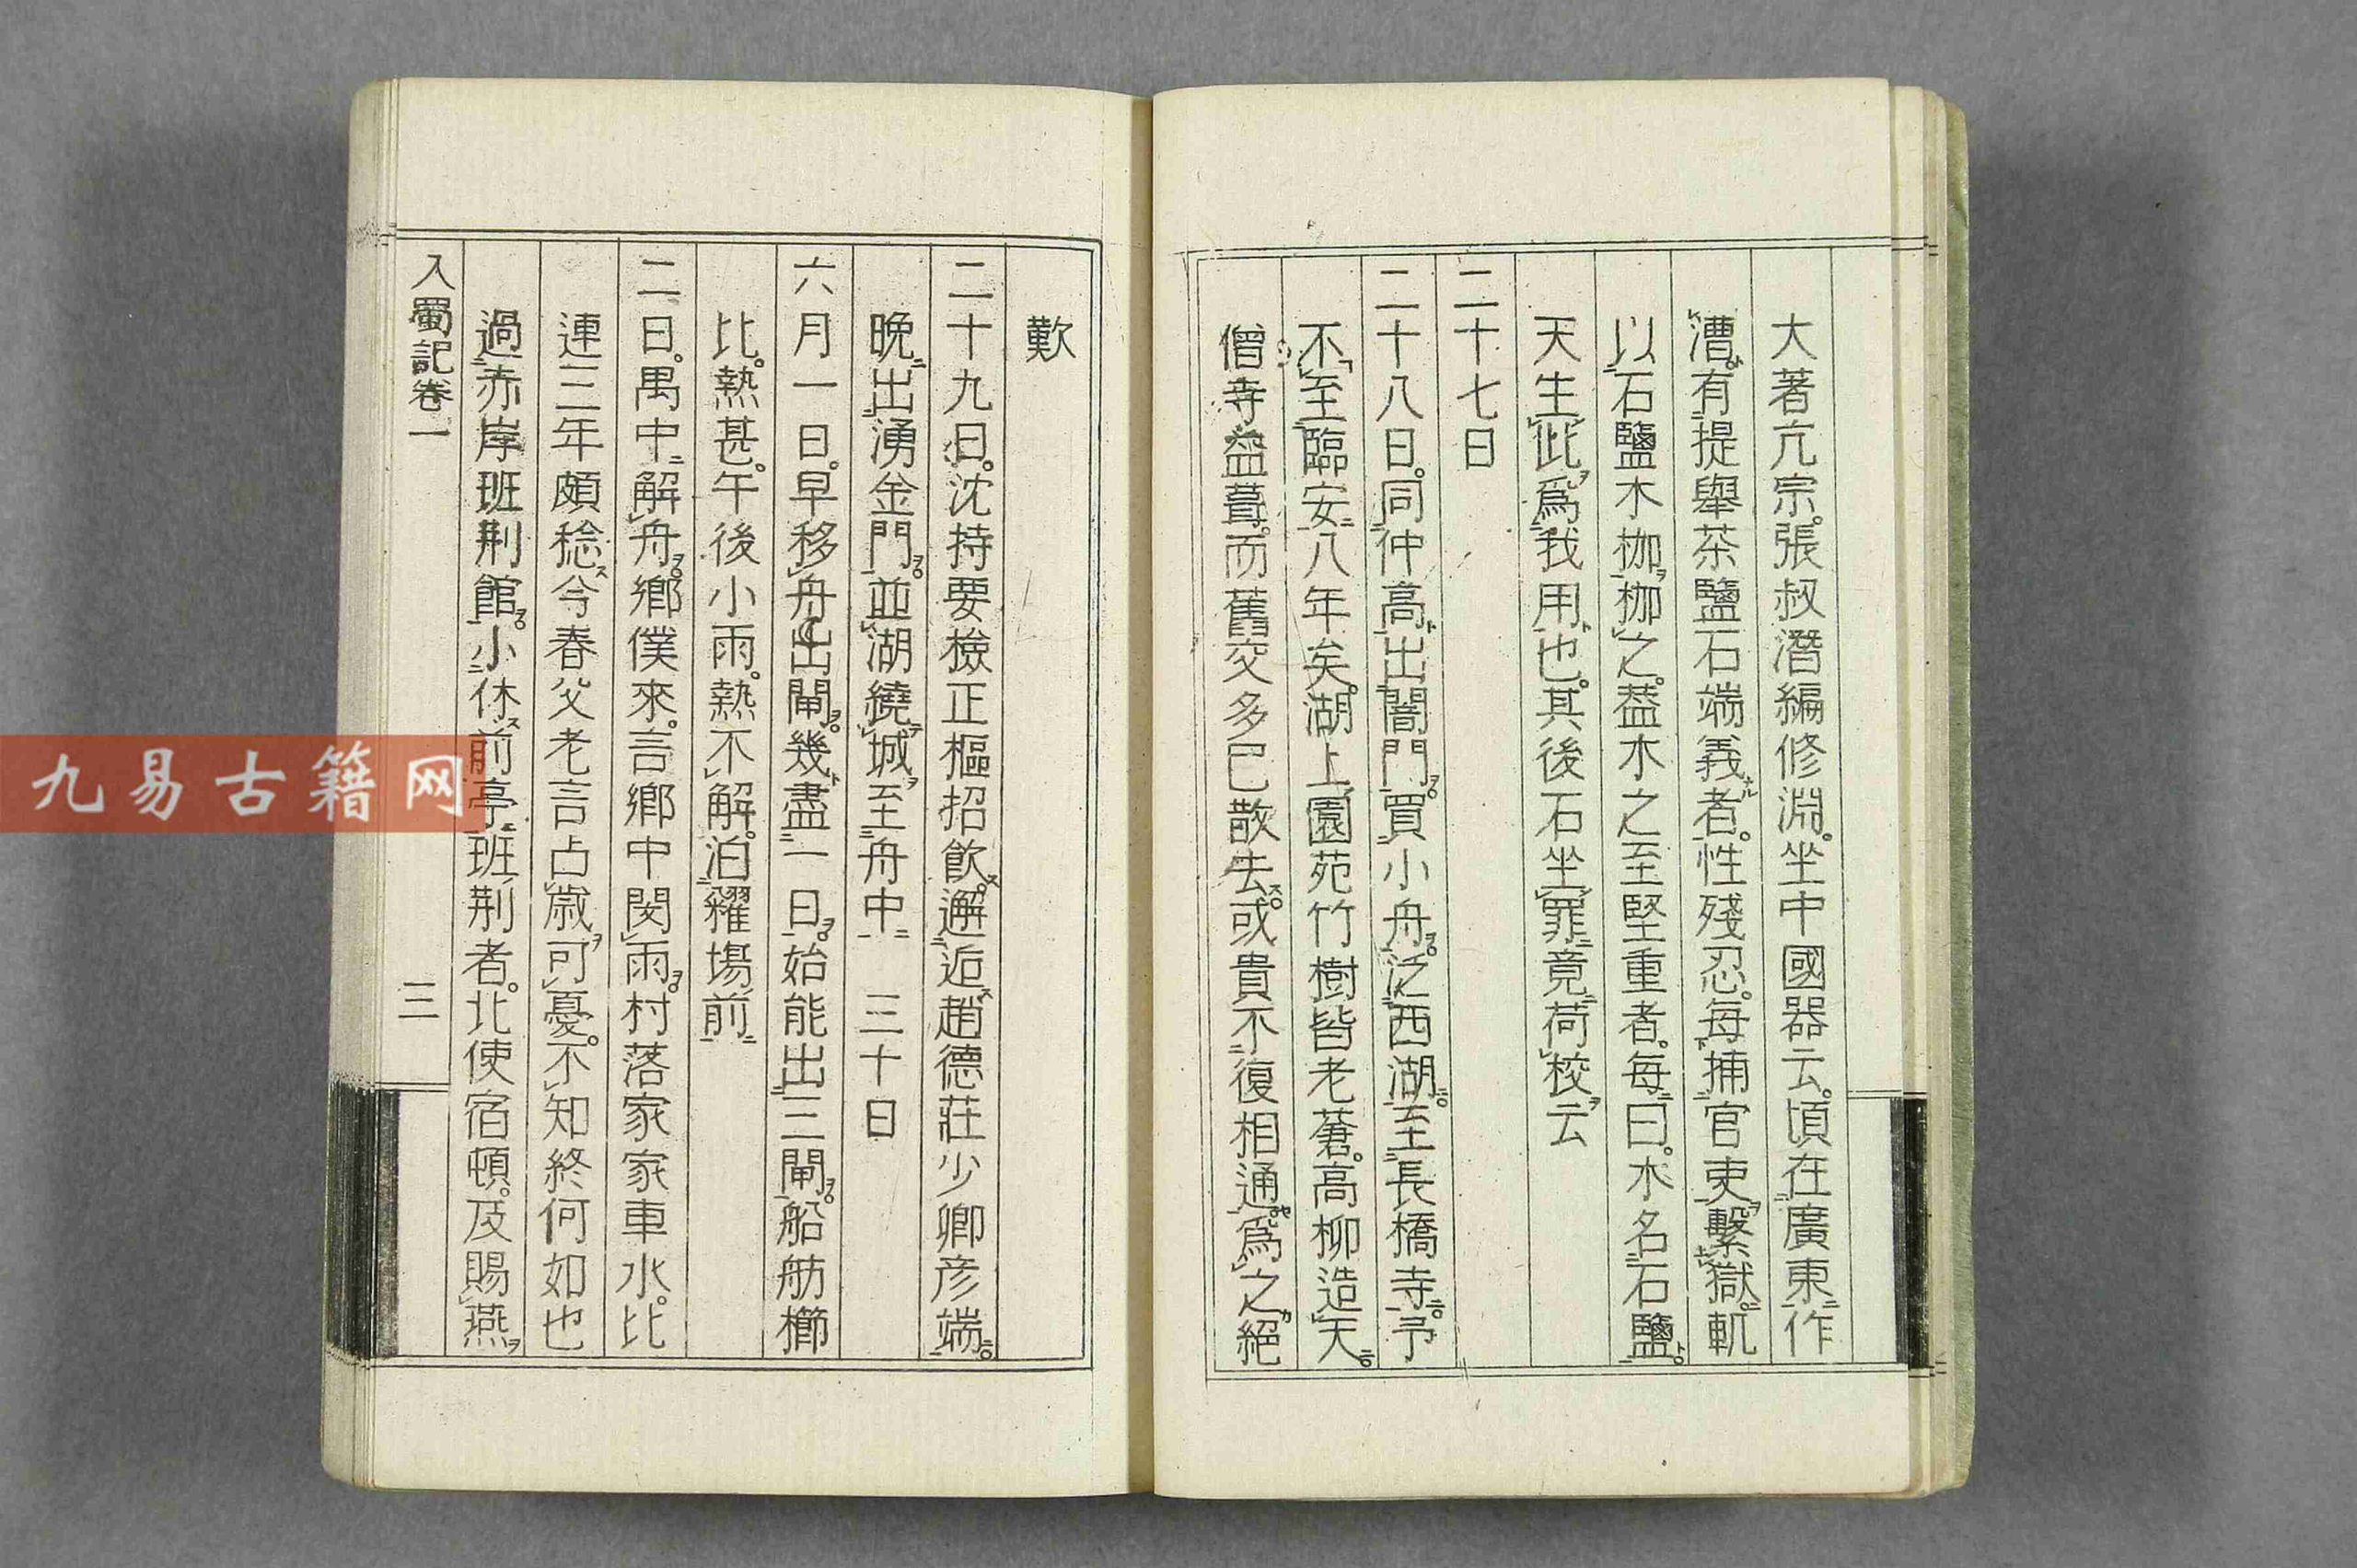 大著亢宗。張叔潛編修淵。坐中國器云。頃在廣東作
漕。有提舉茶鹽石端義者。性殘忍。每捕官吏繫獄。輒
以石鹽木枷枷之。葢木之至堅重者。每曰。木名石鹽。
天生此為我用也。其後石坐罪竟荷校云
二十七日
二十八日。同仲高出闇門。買小舟。泛西湖。至長橋寺。予
不至臨安八年矣。湖上園苑竹樹皆老蒼。高柳造天。
僧寺益葺。而舊交多已散去。或貴不復相通。為之絕
歎
二十九日。沈持要檢正樞招飲。邂逅趙德莊少卿彦端。
晚出湧金門。並湖繞城。至舟中 三十日
六月一日。早移舟出閘。幾盡一日。始能出三閘。船舫櫛
比。熱甚。午後小雨。熱不解。泊糴場前
二日。禺中解舟。鄉僕來。言鄉中閔雨。村落家家車水。比
連三年頗稔。今春父老言占歲可憂。不知終何如也
過赤岸班荆館。小休前亭。班荆者。北使宿頓。及賜燕
入蜀記卷一 三
九易古籍网